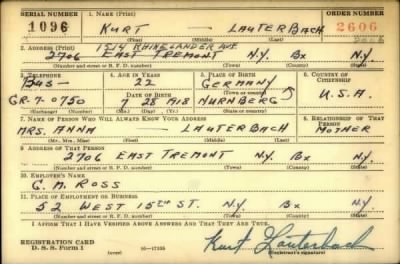 SERIAL NUMBER 1. NAME (Print) ORDER NUMBER
1096 KURT LAUTERBACH 2606
(First) (Middle) (Last)
1514 RHINELANDER AVE
2. ADDRESS (Print)
2706 EAST TREMONT N.Y. BX N.Y.
(Number and street or R. F. D. number) (Town) (County) (State)
3. TELEPHONE 4. AGE IN YEARS 5. PLACE OF BIRTH 6. COUNTRY OF CITIZENSHIP
BUS- 22 GERMANY
GR-7-0750 DATE OF BIRTH NURNBERG U.S.A.
7 28 1918
(Exchange) (Number) (Mo.) (Day) (Yr.) (State or country)
7. NAME OF PERSON WHO WILL ALWAYS KNOW YOUR ADDRESS 8. RELATIONSHIP OF THAT PERSON
MRS. ANNA LAUTERBACH MOTHER
(Mr., Mrs., Miss) (First) (Middle) (Last)
9. ADDRESS OF THAT PERSON
2706 EAST TREMONT N.Y. BX N.Y.
(Number and street or R. F. D. number) (Town) (County) (State)
10. EMPLOYER'S NAME
C. M. ROSS
11. PLACE OF EMPLOYMENT OR BUSINESS
52 WEST 15TH ST. N.Y. BX N.Y.
(Number and street or R. F. D. number) (Town) (County) (State)
I AFFIRM THAT I HAVE VERIFIED ABOVE ANSWERS AND THAT THEY ARE TRUE.
REGISTRATION CARD
D. S. S. Form 1 (over) 16-17105 Kurt Lauterbach
(Registrant's signature)